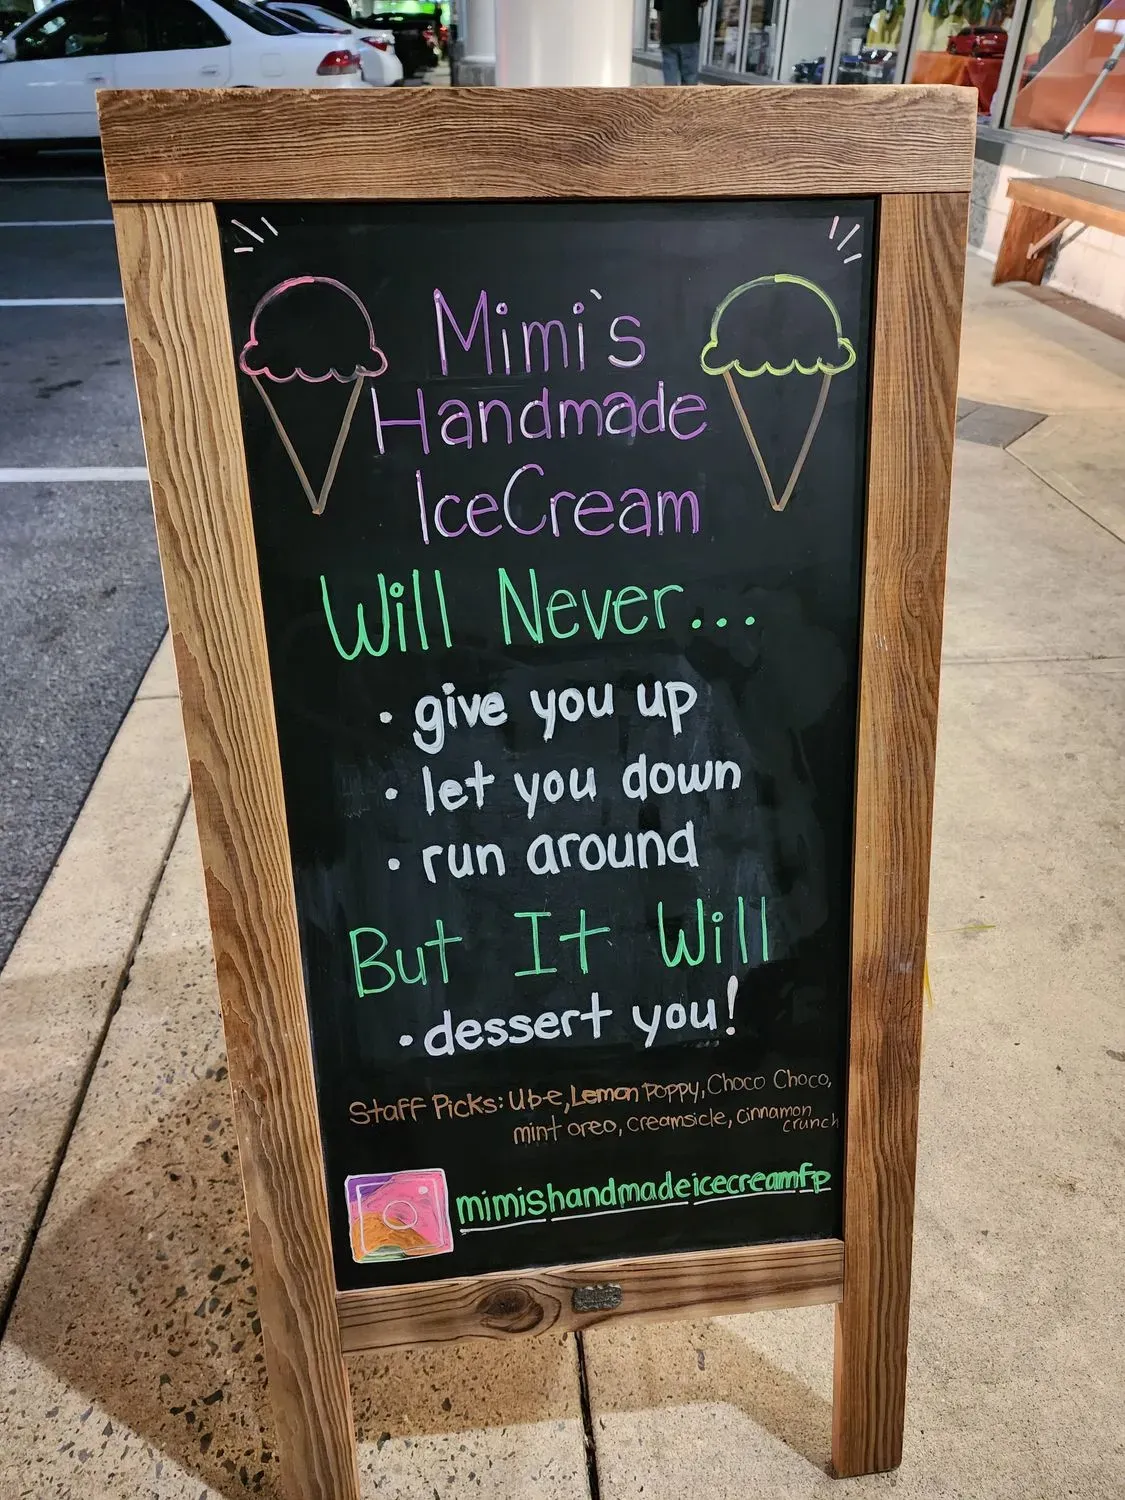 Mimi's
Handmade
IceCream
Will Never...
• give you up
• let you down
• run around
But It Will
• dessert you!
Staff Picks: Ube, Lemon Poppy, Choco Choco,
mint oreo, creamsicle, cinnamon
crunch
mimishandmadeicecreamfp